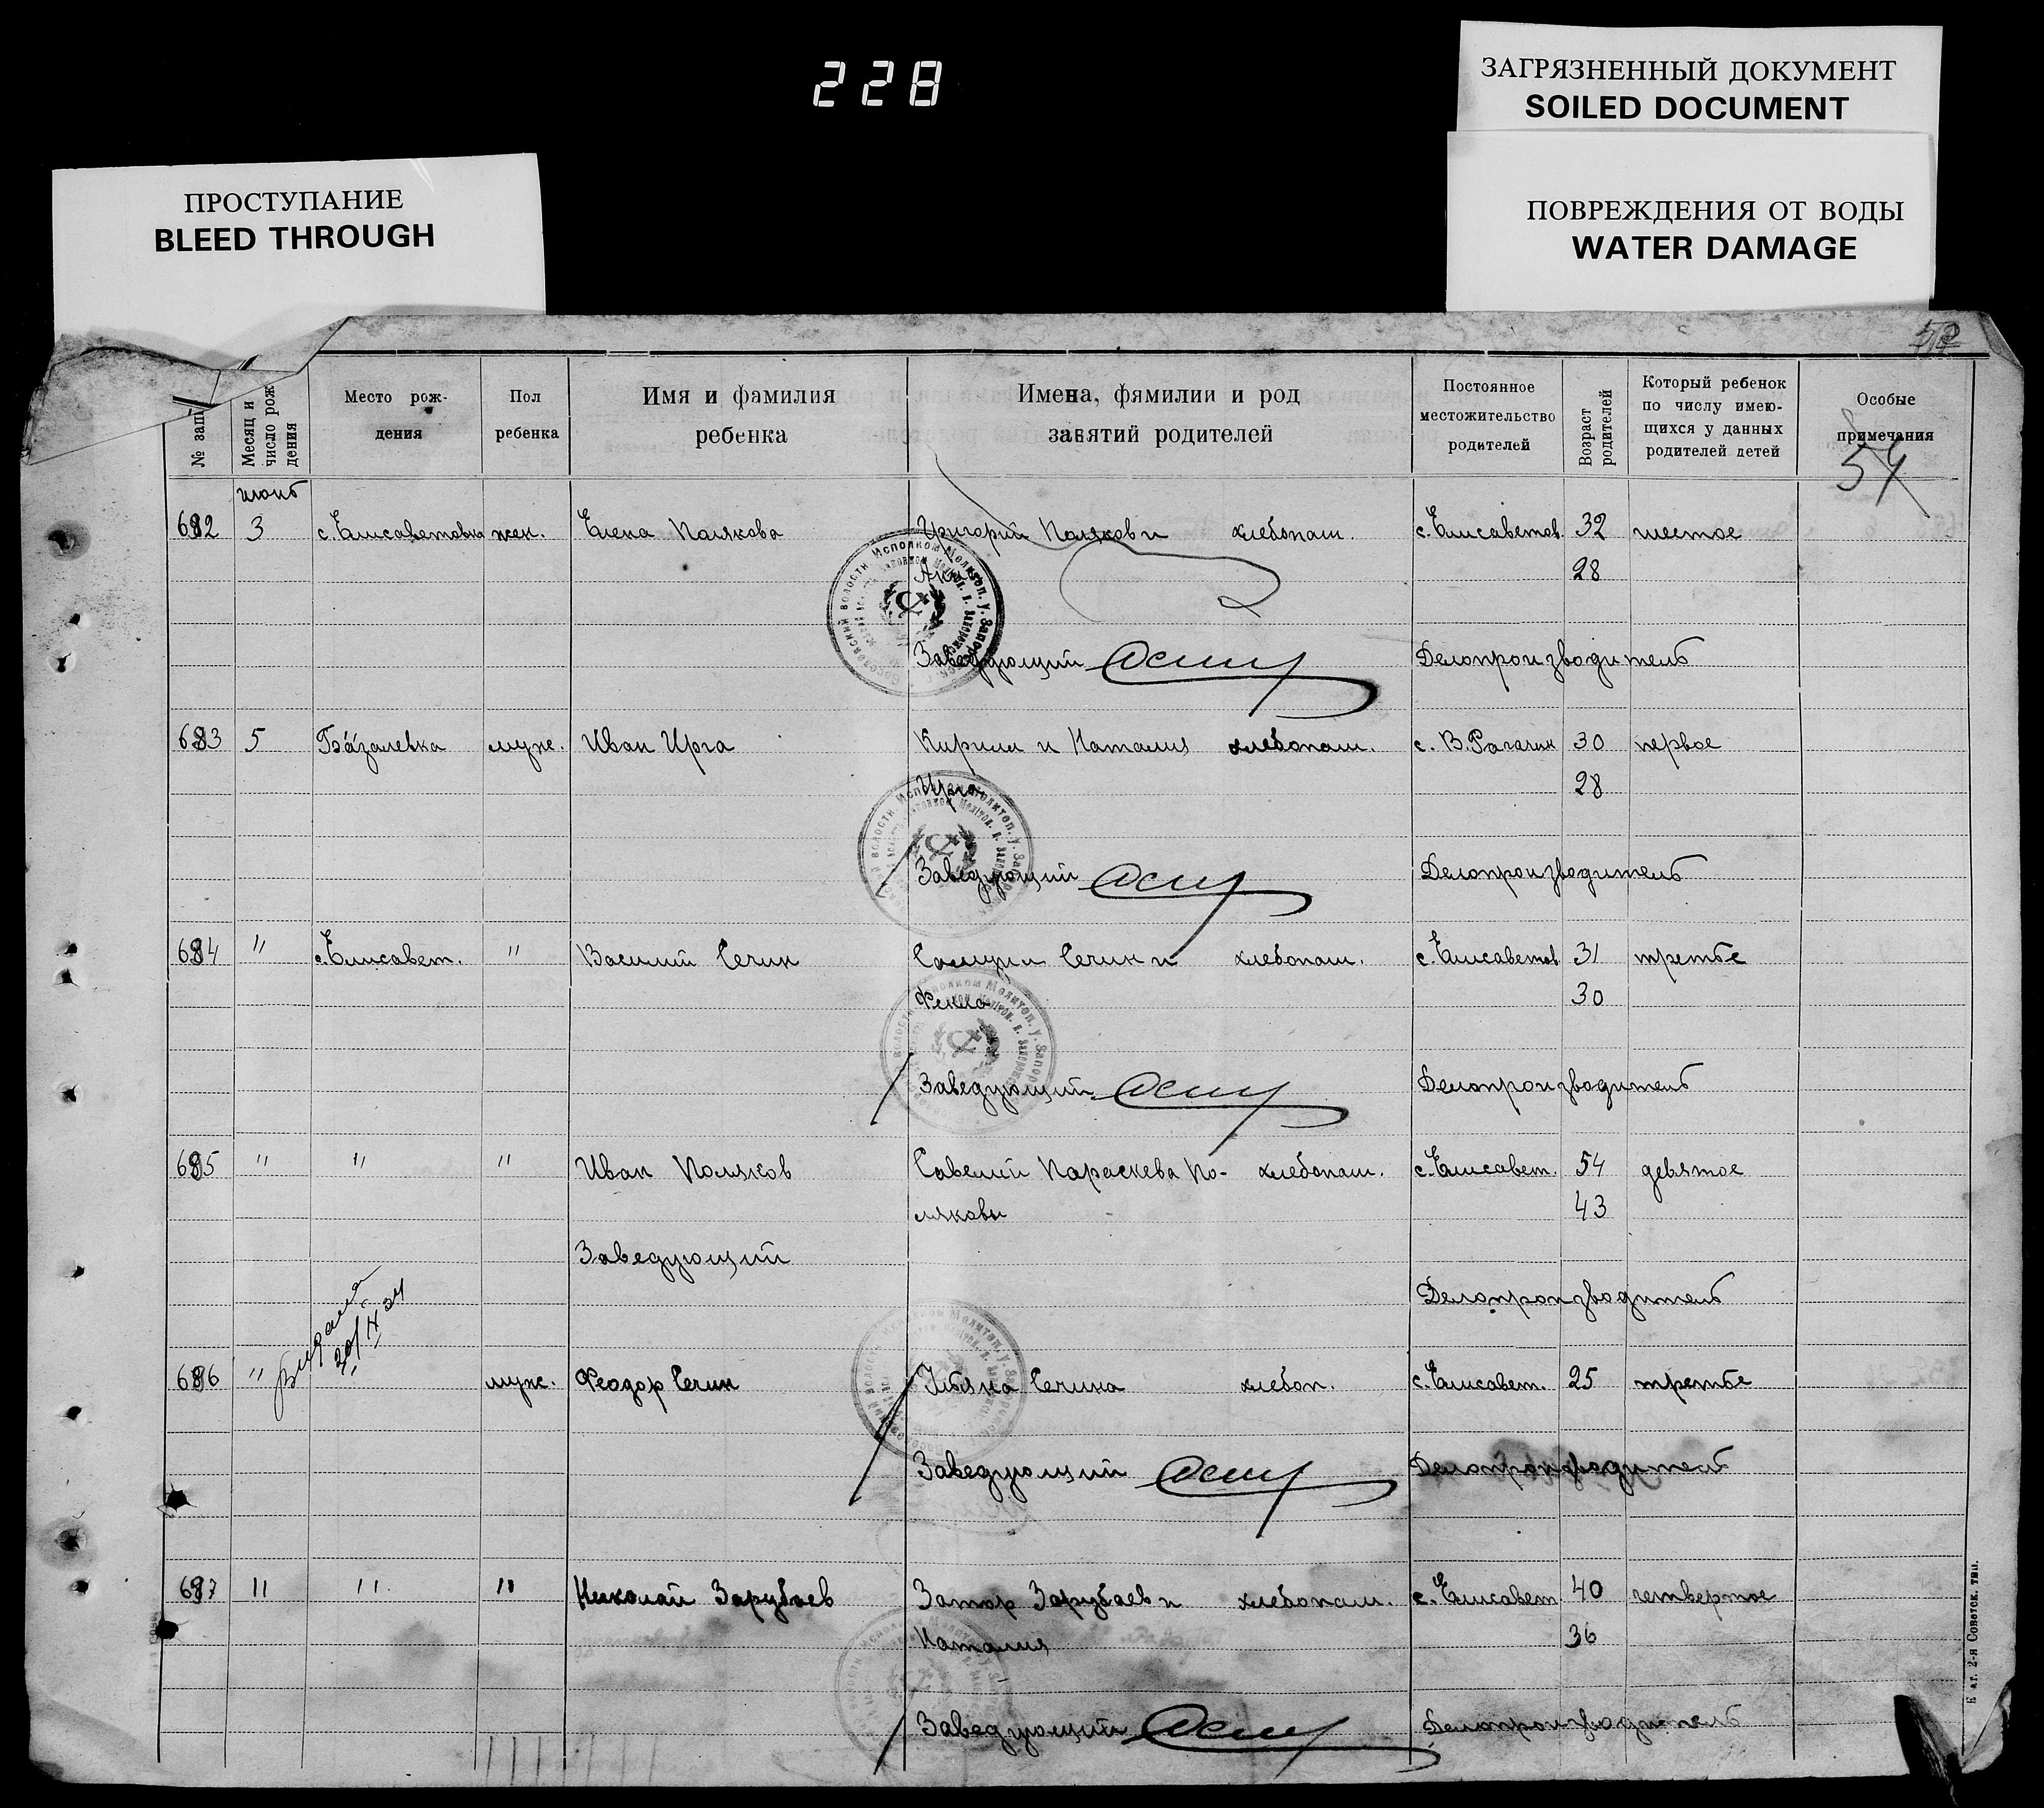 228
ЗАГРЯЗНЕННЫЙ ДОКУМЕНТ
SOILED DOCUMENT
ПРОСТУПАНИЕ
BLEED THROUGH
ПОВРЕЖДЕНИЯ ОТ ВОДЫ
WATER DAMAGE
№ зап
Месяц и число рож дения
Место рож-
дения
Пол
ребенка
Имя и фамилия
ребенка
Имена, фямилии и род
занятий родителей
Постоянное
местожительство
родителей
Возраст родителей
Который ребенок
по числу имею-
щихся у данных
родителей детей
Особые
примечания
54
июнь
682 3 с. Елисаветовка жен. Елена Полякова Григорий Поляков и хлебопаш. с. Елисаветов. 32 шестое
28
Заведующий Делопроизводитель
683 5 Базалевка муж. Иван Ирга Кирилл и Наталия хлебопаш. с. В. Рагачик 30 первое
Ирга 28
Заведующий Делопроизводитель
684 " с. Елисавет. " Василий Сечин Сечин и хлебопаш. с. Елисаветов. 31 третье
Фекла 30
Заведующий Делопроизводитель
685 " " " Иван Поляков Савелий Параскева По- хлебопаш. с. Елисавет. 54 девятое
ляковы 43
Заведующий
Делопроизводитель
686 " муж. Феодор Сечин Сечина хлебоп. с. Елисавет. 25 третье
Заведующий Делопроизводитель
687 " " " Николай Зарубаев Зарубаев и хлебопаш. с. Елисавет 40 четвертое
Наталия 36
Заведующий Делопроизводитель
2-я Советск. тип.